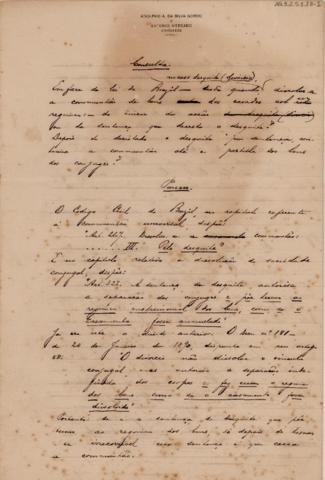 ADOLPHO A. DA SILVA GORDO
E
ANTONIO MERCADO
ADVOGADOS
Consulta
nesse desquite (divorcio)
Conforme a lei do Brazil desde quando dissolve
a communhão de bens dos casados
requereram do inicio da acção
ou da sentença que decreta o desquite?
Depois de decretado o desquite por sentença, con-
tinua a communhão até a partilha dos bens
dos conjuges?
Parecer
O Codigo Civil do Brazil no capitulo referente
á communhão universal, dispõe:
"Art. 267. Dissolve-se a communhão:
III. Pelo desquite"
E no capitulo relativo á dissolução da sociedade
conjugal, dispõe:
"Art. 322. A sentença do desquite autorisa
a separação dos conjuges e põe termo ao
regimen matrimonial dos bens, como se o
casamento fosse annullado"
Já era este o direito anterior. O Dec. nº 181
de 24 de Janeiro de 1890, dispunha em seu artigo
88: "O divorcio não dissolve o vinculo
conjugal, mas autorisa a separação inde-
finida dos corpos e faz cessar o regimen
dos bens como se o casamento fosse
dissolvido"
a sentença de desquite que põe
termo ao regimen dos bens, só depois de
irrevogavel a sentença é que cessa
a communhão.